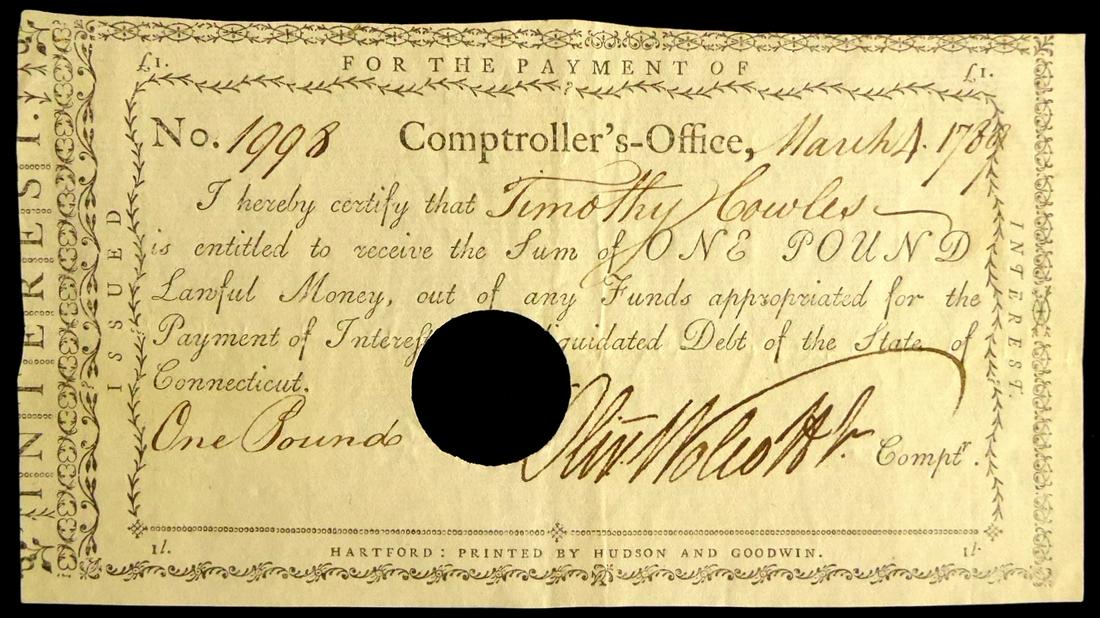 FOR THE PAYMENT OF
£1. £1.
No. 1998 Comptroller's-Office, March 4. 1789
I hereby certify that Timothy Cowles
is entitled to receive the Sum of ONE POUND
Lawful Money, out of any Funds appropriated for the
Payment of Interest iquidated Debt of the State of
Connecticut.
One Pound
Oliv. Wolcott Jr. Comptr.
1l. 1l.
HARTFORD: PRINTED BY HUDSON AND GOODWIN.
ISSUED
INTEREST.
INTEREST.